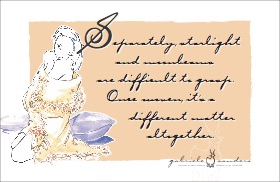 Separately, starlight
and moonbeams
are difficult to grasp.
Once woven, it's a
different matter
altogether.
gabriele sanders